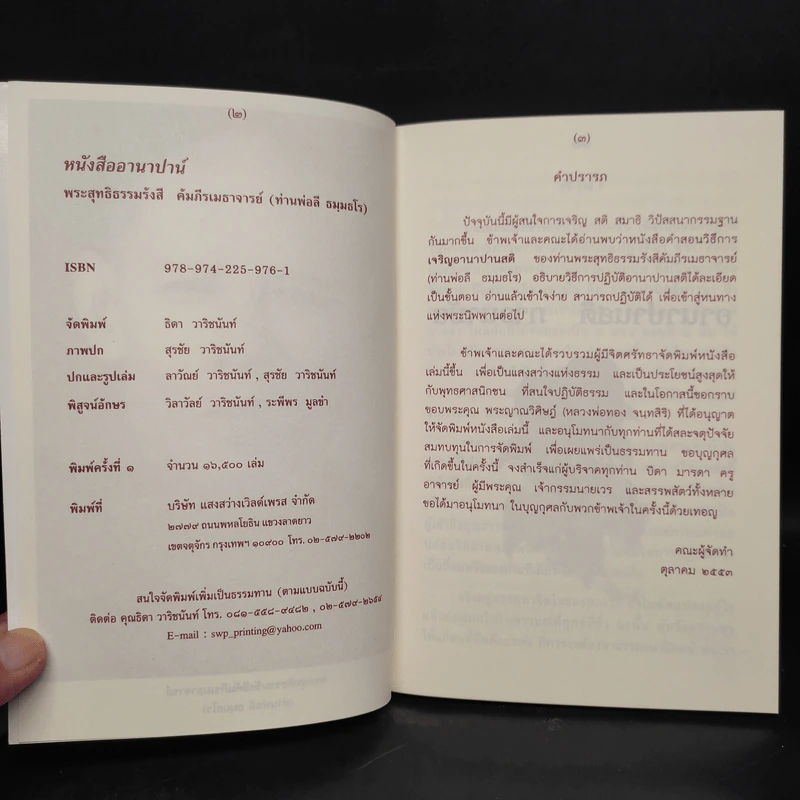 (๒)
หนังสืออานาปาน์
พระสุทธิธรรมรังสี คัมภีรเมธาจารย์ (ท่านพ่อลี ธมฺมธโร)
ISBN 978-974-225-976-1
จัดพิมพ์ ธิดา วาริชนันท์
ภาพปก สุรชัย วาริชนันท์
ปกและรูปเล่ม ลาวัณย์ วาริชนันท์ , สุรชัย วาริชนันท์
พิสูจน์อักษร วิลาวัลย์ วาริชนันท์ , ระพีพร มูลขำ
พิมพ์ครั้งที่ ๑ จำนวน ๑๖,๕๐๐ เล่ม
พิมพ์ที่ บริษัท แสงสว่างเวิลด์เพรส จำกัด
๒๗๗๙ ถนนพหลโยธิน แขวงลาดยาว
เขตจตุจักร กรุงเทพฯ ๑๐๙๐๐ โทร. ๐๒-๕๗๙-๒๒๐๒
สนใจจัดพิมพ์เพิ่มเป็นธรรมทาน (ตามแบบฉบับนี้)
ติดต่อ คุณธิดา วาริชนันท์ โทร. ๐๘๑-๕๕๘-๙๔๘๒ , ๐๒-๕๗๙-๒๖๕๔
E-mail : swp_printing@yahoo.com
(๓)
คำปรารภ
ปัจจุบันนี้มีผู้สนใจการเจริญ สติ สมาธิ วิปัสสนากรรมฐาน
กันมากขึ้น ข้าพเจ้าและคณะได้อ่านพบว่าหนังสือคำสอนวิธีการ
เจริญอานาปานสติ ของท่านพระสุทธิธรรมรังสีคัมภีรเมธาจารย์
(ท่านพ่อลี ธมฺมธโร) อธิบายวิธีการปฏิบัติอานาปานสติได้ละเอียด
เป็นขั้นตอน อ่านแล้วเข้าใจง่าย สามารถปฏิบัติได้ เพื่อเข้าสู่หนทาง
แห่งพระนิพพานต่อไป
ข้าพเจ้าและคณะได้รวบรวมผู้มีจิตศรัทธาจัดพิมพ์หนังสือ
เล่มนี้ขึ้น เพื่อเป็นแสงสว่างแห่งธรรม และเป็นประโยชน์สูงสุดให้
กับพุทธศาสนิกชน ที่สนใจปฏิบัติธรรม และในโอกาสนี้ขอกราบ
ขอบพระคุณ พระญาณวิศิษฏ์ (หลวงพ่อทอง จนฺทสิริ) ที่ได้อนุญาต
ให้จัดพิมพ์หนังสือเล่มนี้ และอนุโมทนากับทุกท่านที่ได้สละจตุปัจจัย
สมทบทุนในการจัดพิมพ์ เพื่อเผยแพร่เป็นธรรมทาน ขอบุญกุศล
ที่เกิดขึ้นในครั้งนี้ จงสำเร็จแก่ผู้บริจาคทุกท่าน บิดา มารดา ครู
อาจารย์ ผู้มีพระคุณ เจ้ากรรมนายเวร และสรรพสัตว์ทั้งหลาย
ขอได้มาอนุโมทนา ในบุญกุศลกับพวกข้าพเจ้าในครั้งนี้ด้วยเทอญ
คณะผู้จัดทำ
ตุลาคม ๒๕๕๓